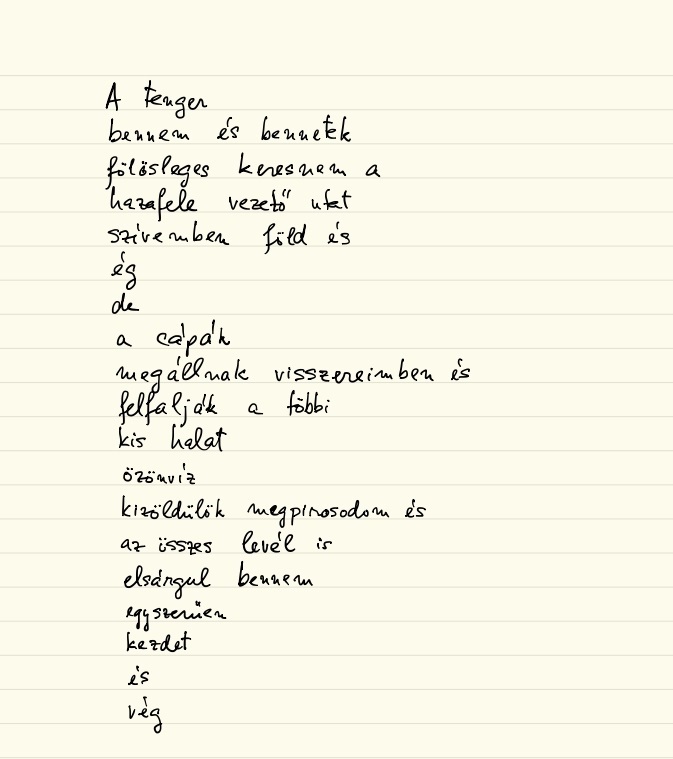 A tenger
bennem és bennetek
fölösleges keresnem a
hazafele vezető utat
szívemben föld és
ég
de
a cápák
megállnak visszereimben és
felfalják a többi
kis halat
özönvíz
kizöldülök megpirosodom és
az összes levél is
elsárgul bennem
egyszerűen
kezdet
és
vég